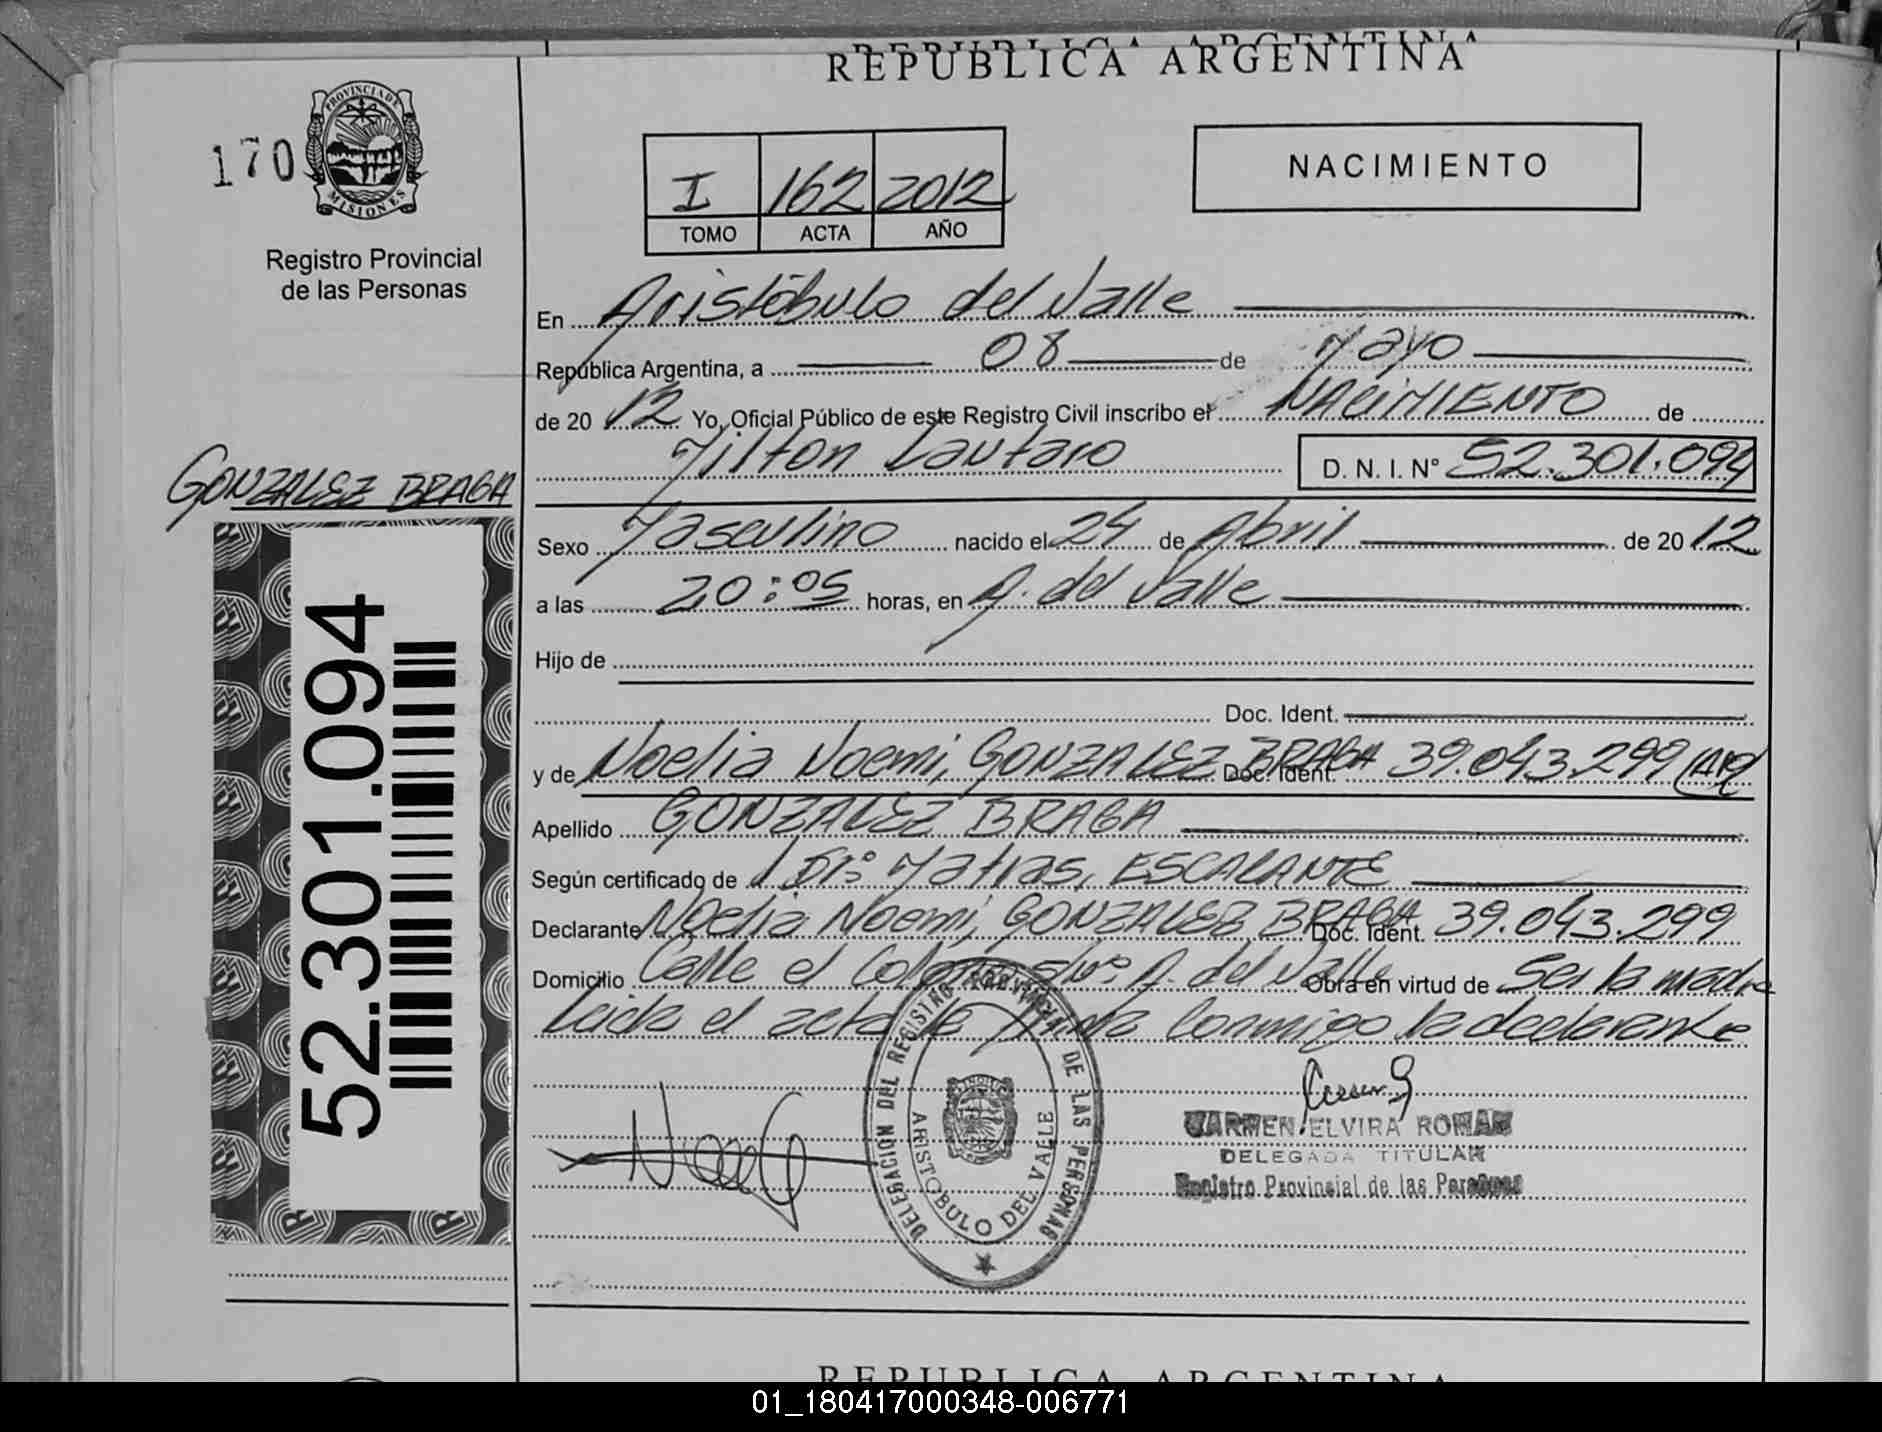 REPUBLICA ARGENTINA
170
PROVINCIA DE MISIONES
Registro Provincial
de las Personas
I 162 2012
TOMO ACTA AÑO
NACIMIENTO
En Aristóbulo del Valle
República Argentina, a 08 de Mayo
de 2012 Yo, Oficial Público de este Registro Civil inscribo el NACIMIENTO de
Milton Lautaro D. N. I. N° 52.301.094
GONZALEZ BRAGA
Sexo Masculino nacido el 24 de Abril de 2012
a las 20:05 horas, en A. del Valle
Hijo de
Doc. Ident.
y de Noelia Noemi, GONZALEZ BRAGA Doc. Ident. 39.043.299
Apellido GONZALEZ BRAGA
Según certificado de Dr: Matias, ESCALANTE
Declarante Noelia Noemi, GONZALEZ BRAGA Doc. Ident. 39.043.299
Domicilio Calle el Colono s/n° A. del Valle Obra en virtud de Ser la madre
Leida el acta la firma conmigo la declarante
52.301.094
DELEGACION DEL REGISTRO PROVINCIAL DE LAS PERSONAS
ARISTOBULO DEL VALLE
CARMEN ELVIRA ROMAN
DELEGADA TITULAR
Registro Provincial de las Personas
REPUBLICA ARGENTINA
01_180417000348-006771